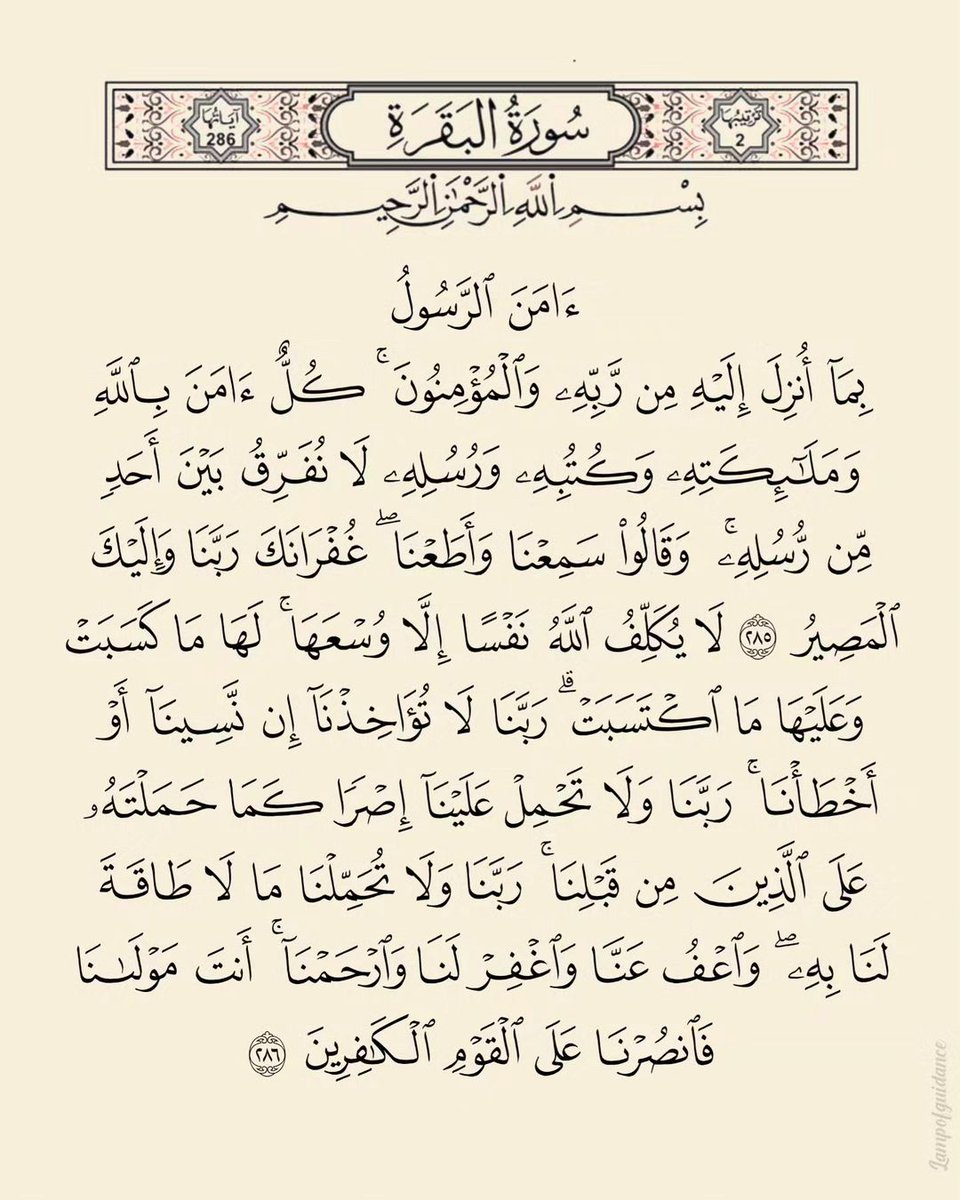 ترتيبها
2
سُورَةُ البَقَرَةِ
آياتها
286
بِسْمِ ٱللَّهِ ٱلرَّحْمَٰنِ ٱلرَّحِيمِ
ءَامَنَ ٱلرَّسُولُ
بِمَآ أُنزِلَ إِلَيْهِ مِن رَّبِّهِۦ وَٱلْمُؤْمِنُونَ ۚ كُلٌّ ءَامَنَ بِٱللَّهِ
وَمَلَٰٓئِكَتِهِۦ وَكُتُبِهِۦ وَرُسُلِهِۦ لَا نُفَرِّقُ بَيْنَ أَحَدٍ
مِّن رُّسُلِهِۦ ۚ وَقَالُوا۟ سَمِعْنَا وَأَطَعْنَا ۖ غُفْرَانَكَ رَبَّنَا وَإِلَيْكَ
ٱلْمَصِيرُ ٢٨٥ لَا يُكَلِّفُ ٱللَّهُ نَفْسًا إِلَّا وُسْعَهَا ۚ لَهَا مَا كَسَبَتْ
وَعَلَيْهَا مَا ٱكْتَسَبَتْ ۗ رَبَّنَا لَا تُؤَاخِذْنَآ إِن نَّسِينَآ أَوْ
أَخْطَأْنَا ۚ رَبَّنَا وَلَا تَحْمِلْ عَلَيْنَآ إِصْرًا كَمَا حَمَلْتَهُۥ
عَلَى ٱلَّذِينَ مِن قَبْلِنَا ۚ رَبَّنَا وَلَا تُحَمِّلْنَا مَا لَا طَاقَةَ
لَنَا بِهِۦ ۖ وَٱعْفُ عَنَّا وَٱغْفِرْ لَنَا وَٱرْحَمْنَآ ۚ أَنتَ مَوْلَىٰنَا
فَٱنصُرْنَا عَلَى ٱلْقَوْمِ ٱلْكَٰفِرِينَ ٢٨٦
Lampofguidance